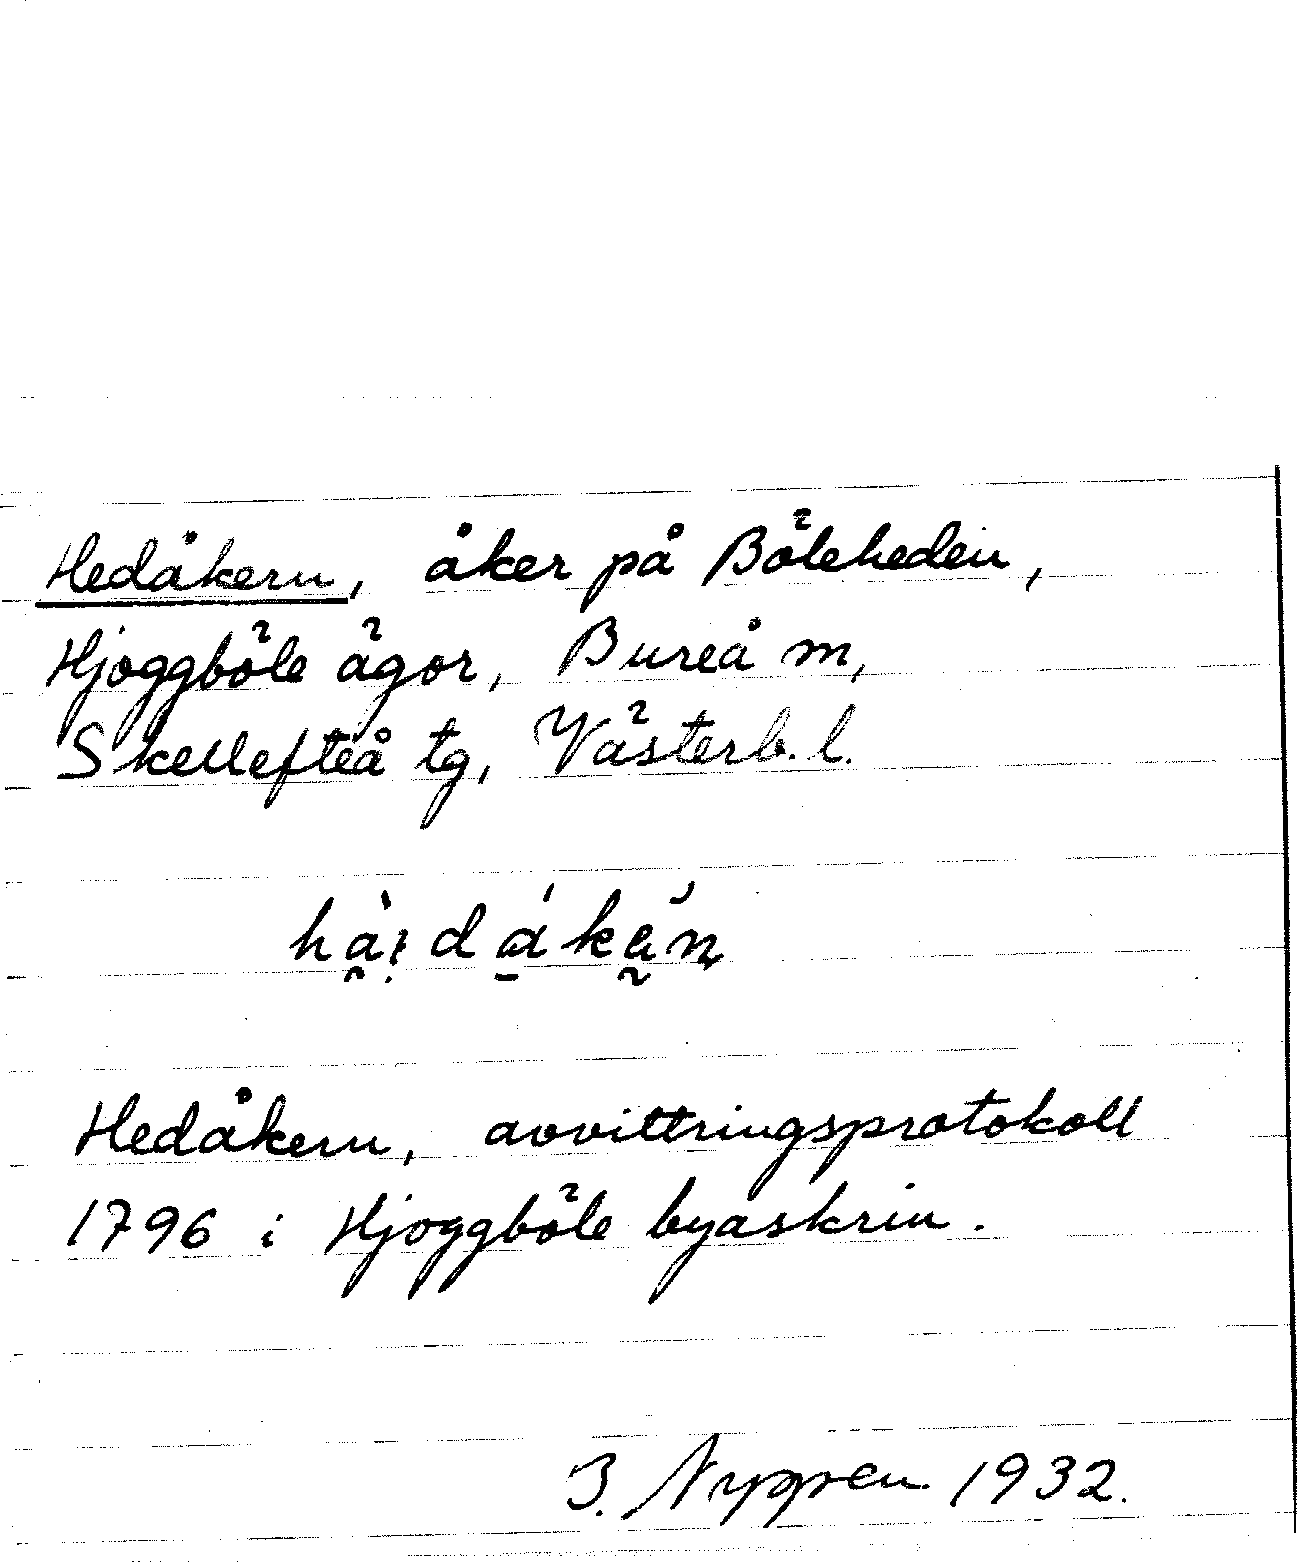 Hedåkern, åker på Böleheden,
Hjoggböle ägor, Bureå m,
Skellefteå tg, Västerb. l.
Hedåkern, avvittringsprotokoll
1796 i Hjoggböle byaskrin.
Nyppen 1932.